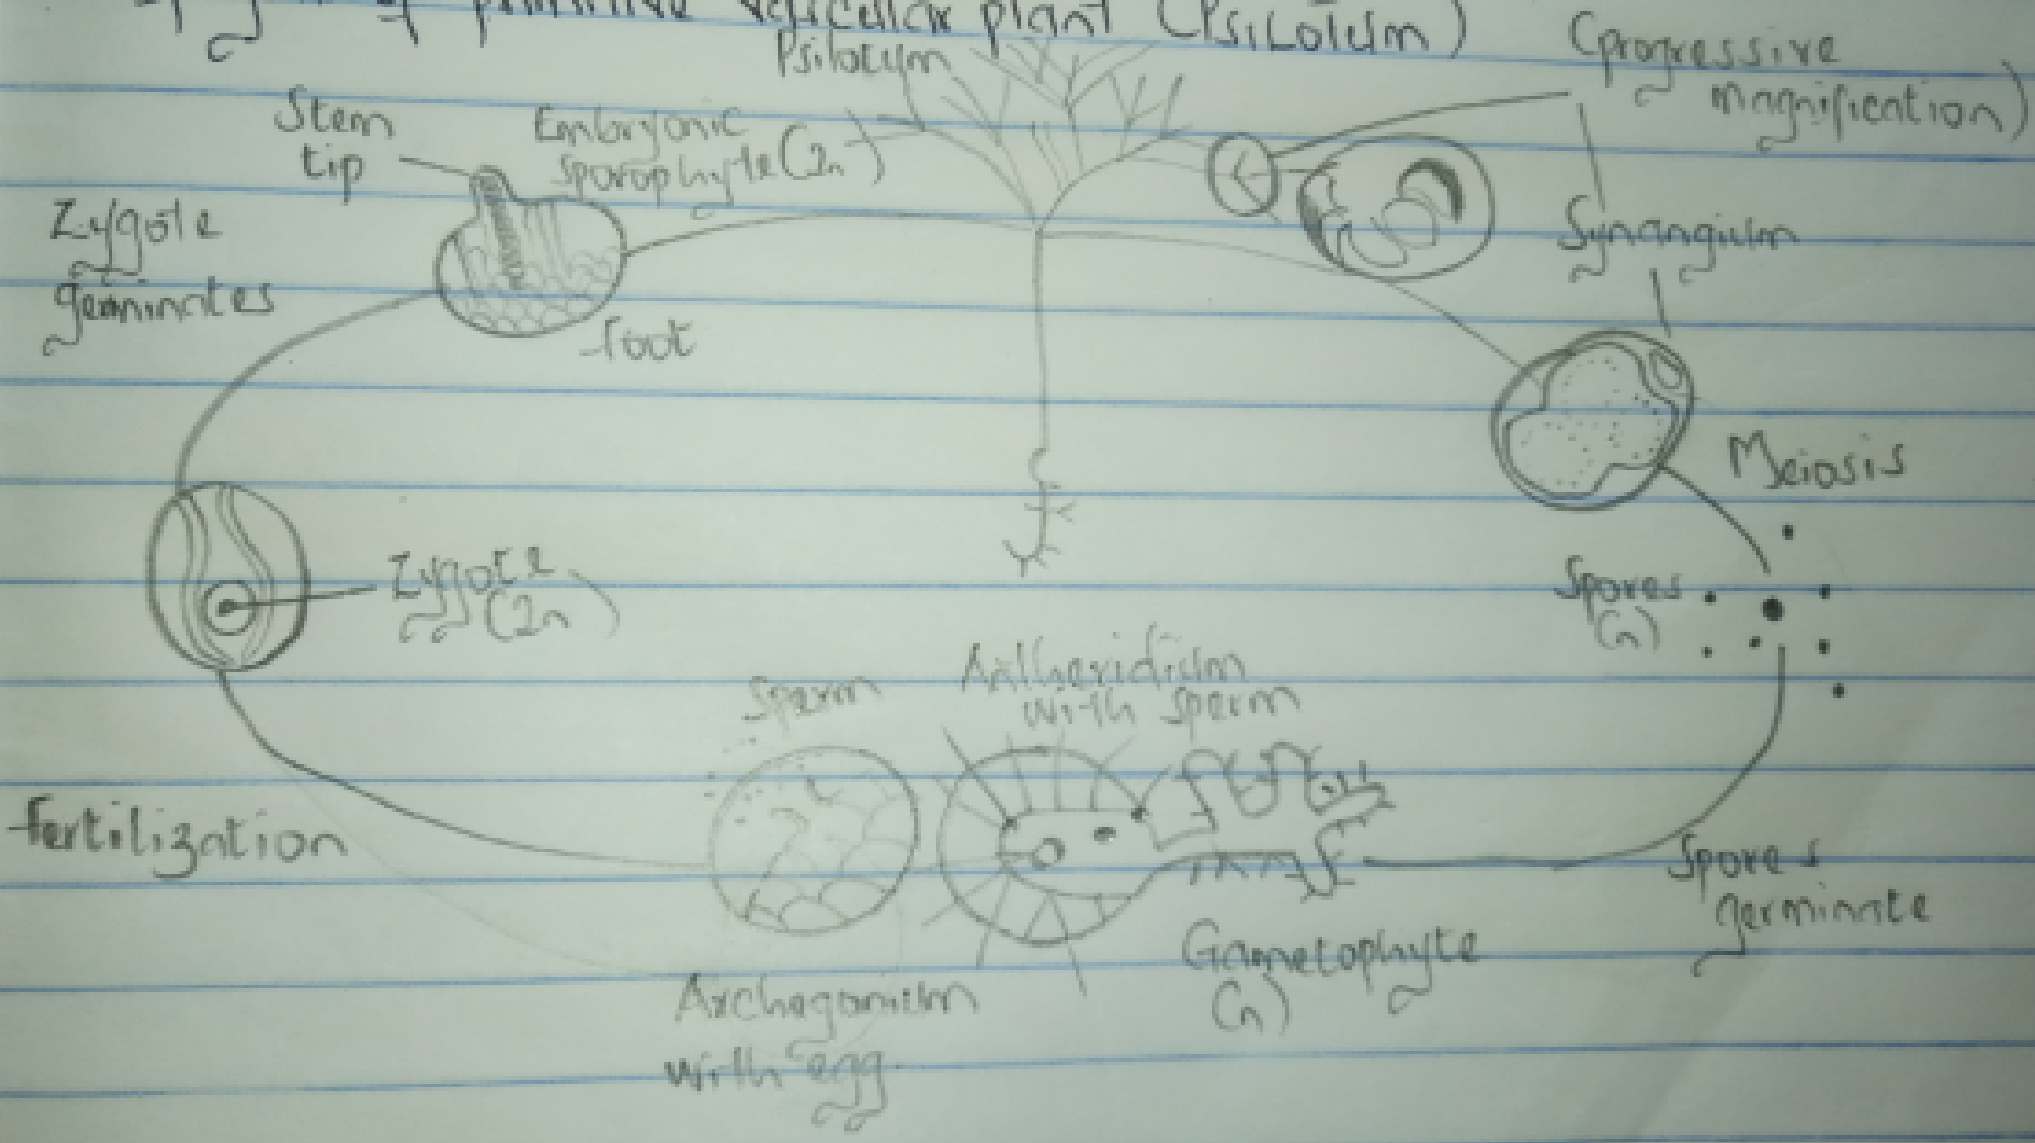 of primitive vascular plant (Psilotum)
Psilotum
(progressive
magnification)
Stem
tip
Embryonic
sporophyte (2n)
Zygote
germinates
Synangium
foot
Meiosis
Zygote
(2n)
Spores
(n)
Sperm
Antheridium
with sperm
fertilization
Spores
germinate
Gametophyte
(n)
Archegonium
with egg